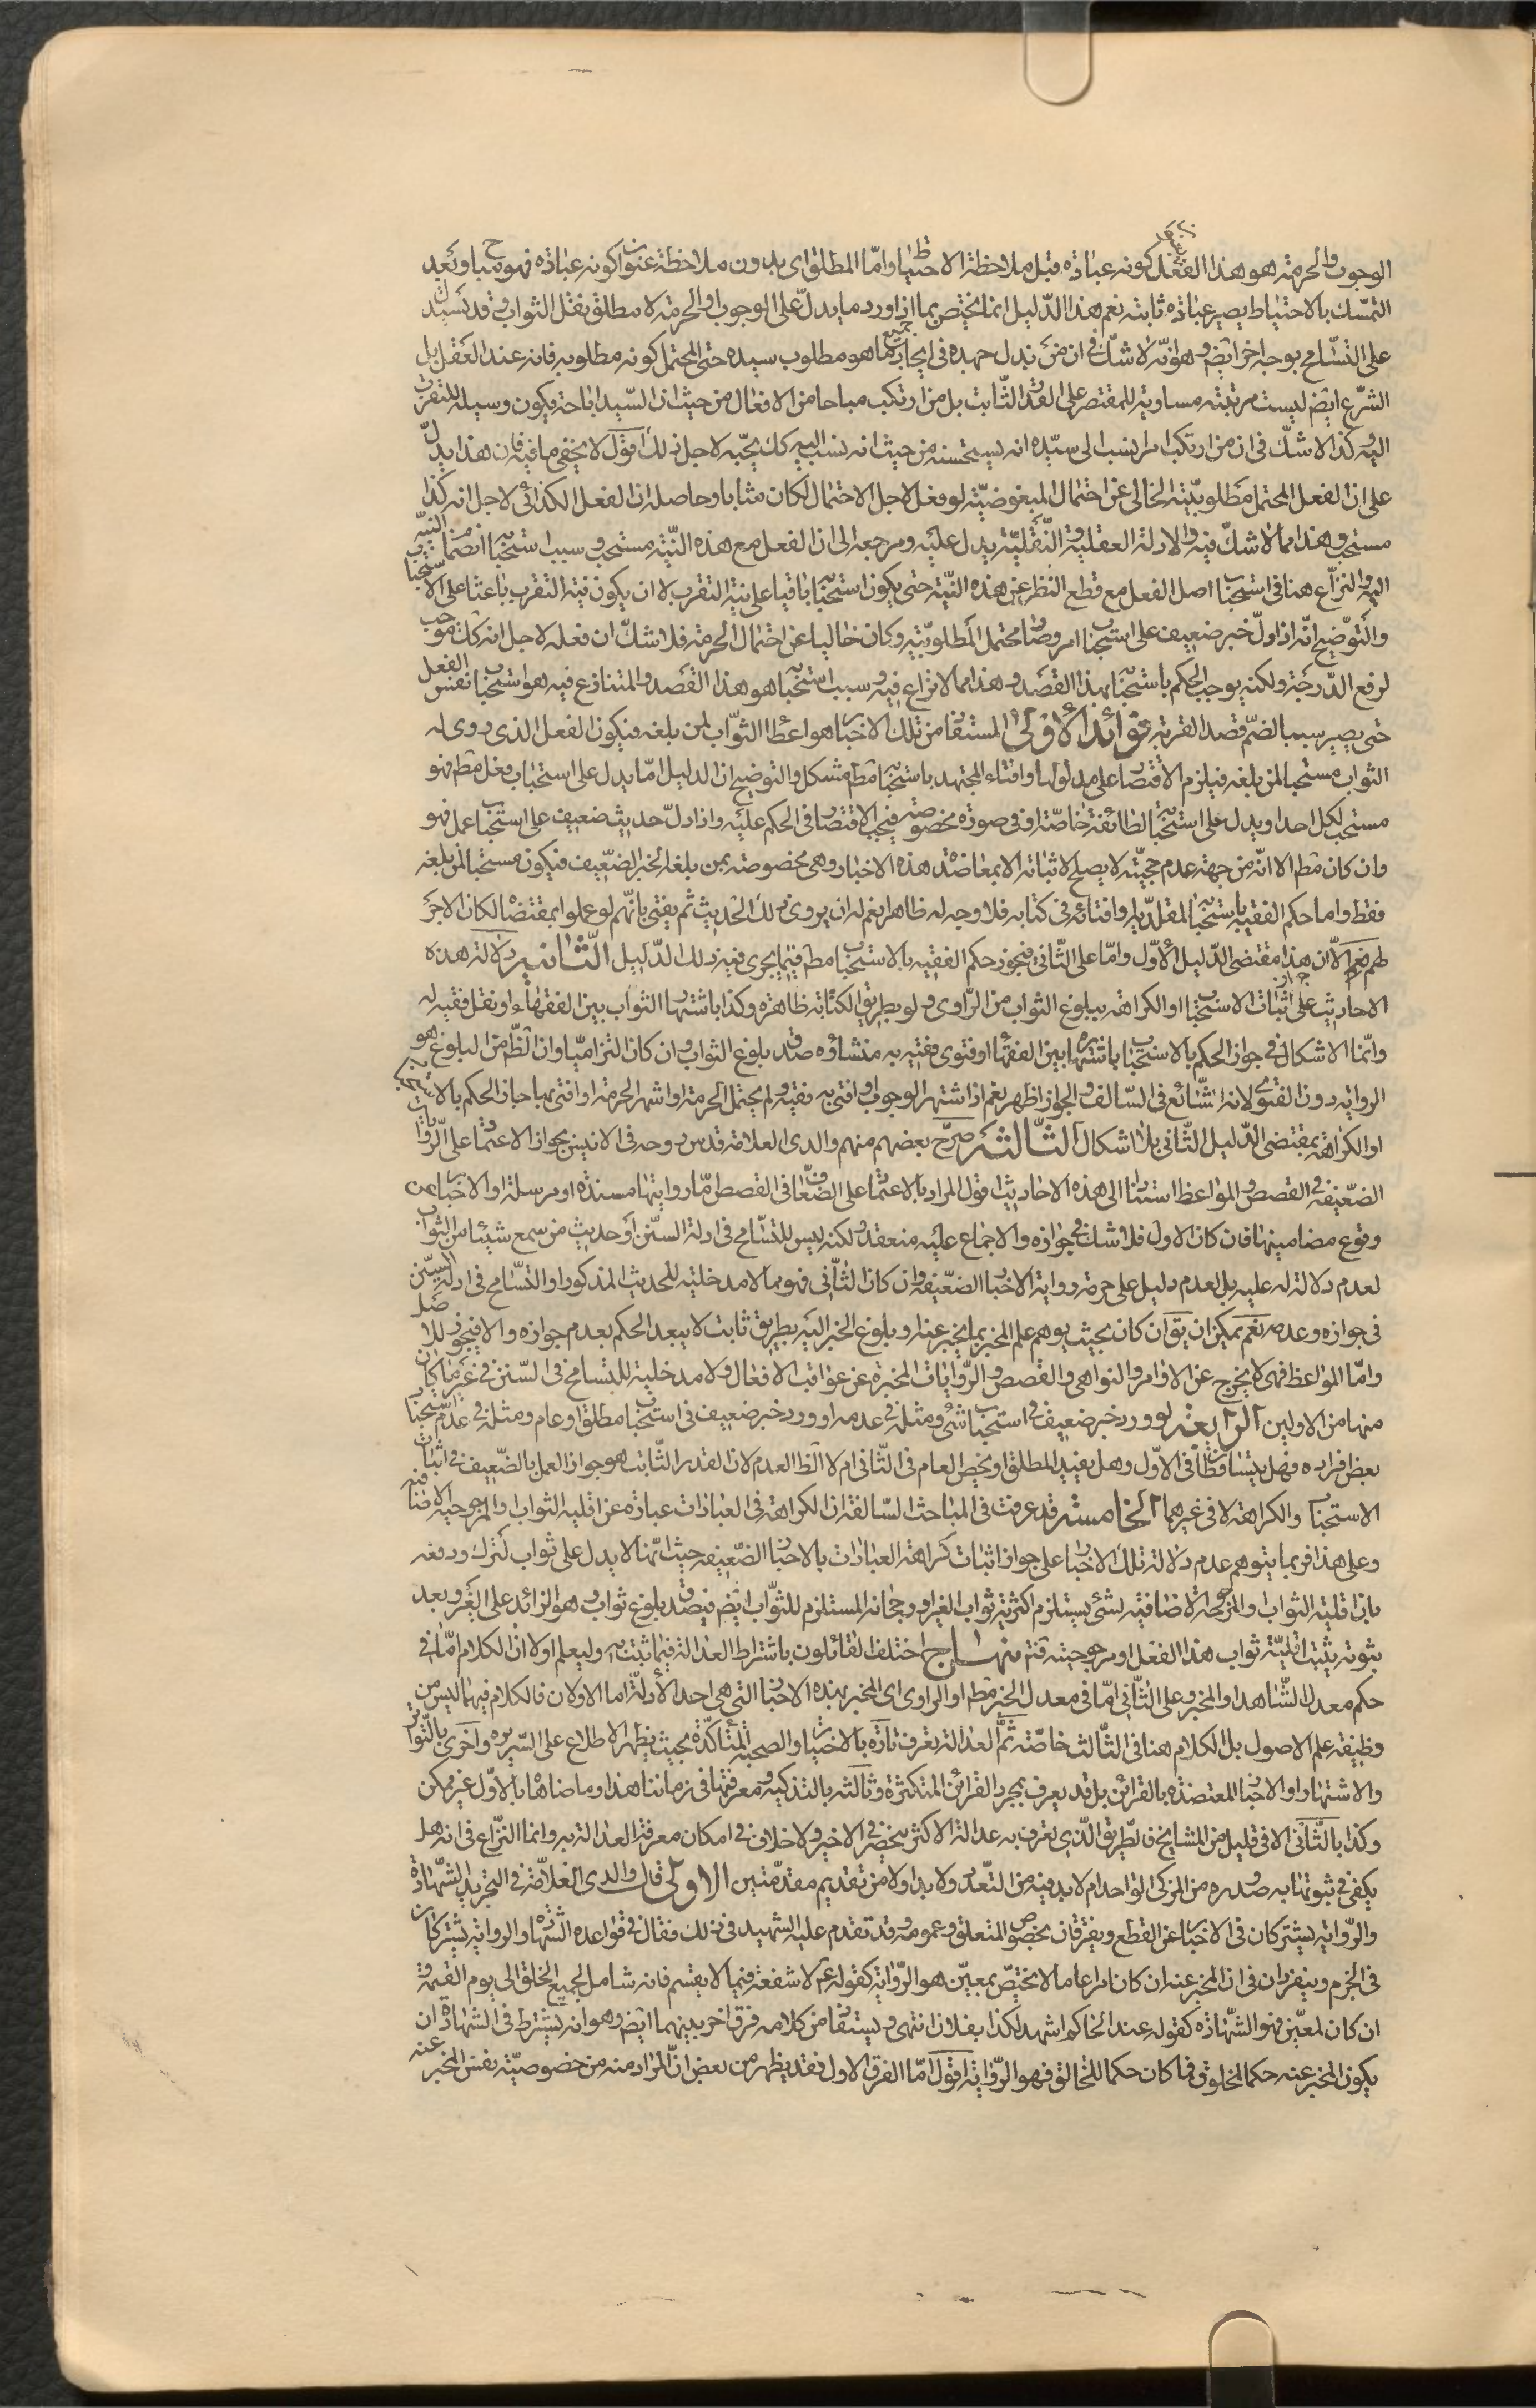 الوجوب والحرمة هو هذا الفعل كونه عبادة قبل ملاحظة الاحتياط واما المطلق اى بدون ملاحظة عنوان كونه عبادة فهو مباح وبعد
التمسّك بالاحتياط يصير عبادة ثابتة نعم هذا الدّليل انما يختص بما اذا ورد ما يدلّ على الوجوب او الحرمة لا مطلق نقل الثواب وقد يستدل
على التسامح بوجه اخر ايضم وهو انّه لا شكّ فى ان من بذل جهده فى ايجاد جميع ما هو مطلوب سيده حتى المحتمل كونه مطلوبه فانه عند العقل بل
الشرع ايضم ليست مرتبته مساوية للمقتصر على القدر الثّابت بل من ارتكب مباحا من الافعال من حيث ان السّيد اباحته يكون وسيلة للتقرب
اليه وكذا لا شكّ فى ان من ارتكب امرا ينسب الى سيّده انه يستحسنه من حيث انه نسب اليه كك يحبّه لاجل ذلك اقول لا يخفى ما فيه فان هذا يدلّ
على ان الفعل المحتمل مطلوبيّته الخالى عن احتمال المبغوضيّته لو فعل لاجل الاحتمال لكان مثابا وحاصله ان الفعل الكذائى لاجل انه كذا
مستحب وهذا مما لا شكّ فيه والادلة العقلية والنّقليّة يدل عليه ومرجعه الى ان الفعل مع هذه النّيّة مستحب وسبب استحبابه انضمام النيّة
اليه والنزاع هنا فى استحباب اصل الفعل مع قطع النظر عن هذه النيّة حتى يكون استحبابه باقيا على نيّة التقرب لا ان يكون نيّة التقرب باعثا على الاستحباب
والتوّضيح انّه اذا دلّ خبر ضعيف على استحباب امر وصار محتمل المطلوبيّة وكان خاليا عن احتمال الحرمة فلا شكّ ان فعله لاجل انه كك موجب
لرفع الدّرجة ولكنه يوجب الحكم باستحبابه بهذا القصد وهذا مما لا نزاع فيه وسبب استحبابه هو هذا القصد والمتنازع فيه هو استحباب نفس الفعل
حتى يصير سببا لضمّ قصد القربة فوائد الاولى المستفاد من تلك الاخبار هو اعطاء الثوّاب لمن بلغه فيكون الفعل الذى روى له
الثواب مستحبا لمن بلغه فيلزم الاقتصار على مدلولها وافتاء المجتهد باستحبابه مطم مشكل والتوضيح ان الدليل امّا يدل على استحباب فعل مطم فهو
مستحب لكل احد او يدل على استحبابه لطائفة خاصّة او فى صورة مخصوصة فيجب الاقتصار فى الحكم عليه واذا دلّ حديث ضعيف على استحباب عمل فهو
وان كان مطم الا انّه من جهة عدم حجيّته لا يصلح لاثباته الا بمعاضدة هذه الاخبار وهى مخصوصة بمن بلغه الخبر الضّعيف فيكون مستحبا لمن بلغه
فقط واما حكم الفقيه باستحبابه لمقلّديه وافتائه فى كتابه فلا وجه له ظاهرا نعم له ان يروى ذلك الحديث ثم يفتى بانّهم لو عملوا بمقتضاه لكان الاجر
لهم نعم الّا ان هذا مقتضى الدّليل الاوّل وامّا على الثّانى فيجوز حكم الفقيه بالاستحباب مطم فيما يجرى فيه ذلك الدّليل الثّانية دلالة هذه
الاحاديث على جواز اثبات الاستحباب او الكراهة ببلوغ الثواب من الرّاوى ولو بطريق الكتابة ظاهرة وكذا باشتهار الثواب بين الفقهاء او نقل فقيه له
وانّما الاشكال فى جواز الحكم بالاستحباب باشتهاره بين الفقهاء او فتوى مفتيه به منشاؤه صدق بلوغ الثواب وان كان التزاميّا وان الظّم من البلوغ هو
الرواية دون الفتوى لانه الشّائع فى السّالف والجواز اظهر نعم اذا اشتهر الوجوب او افتى به فقيه ولم يحتمل الحرمة او اشتهر الحرمة او افتى بها جاز الحكم بالاستحباب
او الكراهة بمقتضى الدّليل الثّانى بلا اشكال الثّالثة صرّح بعضهم منهم والدى العلامة قدس روحه فى الانيس بجواز الاعتماد على الرّوايات
الضّعيفة فى القصص والمواعظ استنادا الى هذه الاحاديث اقول المراد بالاعتماد على الضّعاف فى القصص امّا روايتها مسندة او مرسلة او الاخبار عن
وقوع مضامينها فان كان الاول فلا شك فى جوازه والاجماع عليه منعقد ولكنه ليس للتسّامح فى ادلة السّنن او حديث من سمع شيئا من الثواب
لعدم دلالته له عليه بل لعدم دليل على حرمة رواية الاخبار الضعيفة وان كان الثّانى فهو مما لا مدخلية للحديث المذكور او التسّامح فى ادلة السّنن
فى جوازه وعدمه نعم يمكن ان يق ان كان بحيث يوهم علم المخبر بما يخبر عنه او بلوغ الخبر اليه بطريق ثابت لا يبعد الحكم بعدم جوازه والا فيجوز للاصل
وامّا المواعظ فهى لا يخرج عن الاوامر والنواهى والقصص والرّوايات المخبرة عن عواقب الافعال ولا مدخلية للتسامح فى السّنن فى غير ما كان
منها من الاولين الرابعة لو ورد خبر ضعيف فى استحباب شئ ومثله فى عدمه او ورد خبر ضعيف فى استحباب مطلق او عام ومثله فى عدم استحباب
بعض افراده فهل يتساقطان فى الاوّل وهل يقيد المطلق او يخص العام فى الثّانى ام لا الظ العدم لان القدر الثّابت هو جواز العمل بالضّعيف فى اثبات
الاستحباب والكراهة لا فى غيرهما الخامسة قد عرفت فى المباحث السّالفة ان الكراهة فى العبادات عبارة عن اقلية الثواب والمرجوحية الاضافية
وعلى هذا فربما يتوهم عدم دلالة تلك الاخبار على جواز اثبات كراهة العبادات بالاخبار الضّعيفة حيث انّها لا يدل على ثواب لترك ودفعه
بان اقلية الثواب والمرجوحة الاضافيّة لشئ يستلزم اكثرية ثواب الغير او رجحانه المستلزم للثوّاب ايضم فيصدق بلوغ ثواب وهو الزائد على الغير وبعد
ثبوته يثبت اقليّة ثواب هذا الفعل او مرجوحيته فتم منهاج اختلف القائلون باشتراط العدالة فيما تثبت به وليعلم اولا ان الكلام امّا فى
حكم معدل الشّاهد او المخبر وعلى الثّانى امّا فى معدل الخبر مطم او الراوى اى المخبر بهذه الاخبار التى هى احد الادلة امّا الاولان فالكلام فيهما ليس من
وظيفة علم الاصول بل الكلام هنا فى الثّالث خاصّة ثمّ العدالة تعرف تارة بالاختبار والصحبة المتأكدة بحيث يظهر الاطلاع على السّريره واخرى بالتّواتر
والاشتهار او الاخبار المعتضدة بالقرائن بل قد يعرف بمجرد القرائن المتكثرة وثالثة بالتذكية ومعرفتها فى زماننا هذا وما ضاهاه بالاوّل غير ممكن
وكذا بالثّانى الا فى قليل من المشايخ فالطّريق الّذى يعرف به عدالة الاكثر منحصر فى الاخير ولا خلاف فى امكان معرفة العدالة به وانما النّزاع فى انه هل
يكفى فى ثبوتها به صدوره من المزكى الواحد ام لا بد فيه من التعّدد ولا بد اولا من تقديم مقدّمتين الاولى قال والدى العلامة فى التجريد الشّهادة
والرّواية يشتركان فى الاخبار عن القطع ويفترقان بخصوص المتعلق وعمومه وقد تقدم عليه الشهيد فى ذلك فقال فى قواعده الشّهادة والرواية يشتركان
فى الجزم وينفردان فى ان المخبر عنه ان كان امرا عاما لا يختصّ بمعيّن هو الرّواية كقوله عم لا شفعة فيما لا يقسم فانه شامل لجميع الخلق الى يوم القيمة
ان كان لمعيّن فهو الشّهادة كقوله عند الحاكم اشهد لكذا بفلان انتهى ويستفاد من كلامه فرق اخر بينهما ايضم وهو انه يشترط فى الشهادة ان
يكون المخبر عنه حكما لمخلوق فما كان حكما للخالق فهو الرّواية اقول امّا الفرق الاول فقد يظهر من بعض انّ المراد منه من خصوصيّة نفس المخبر عنه